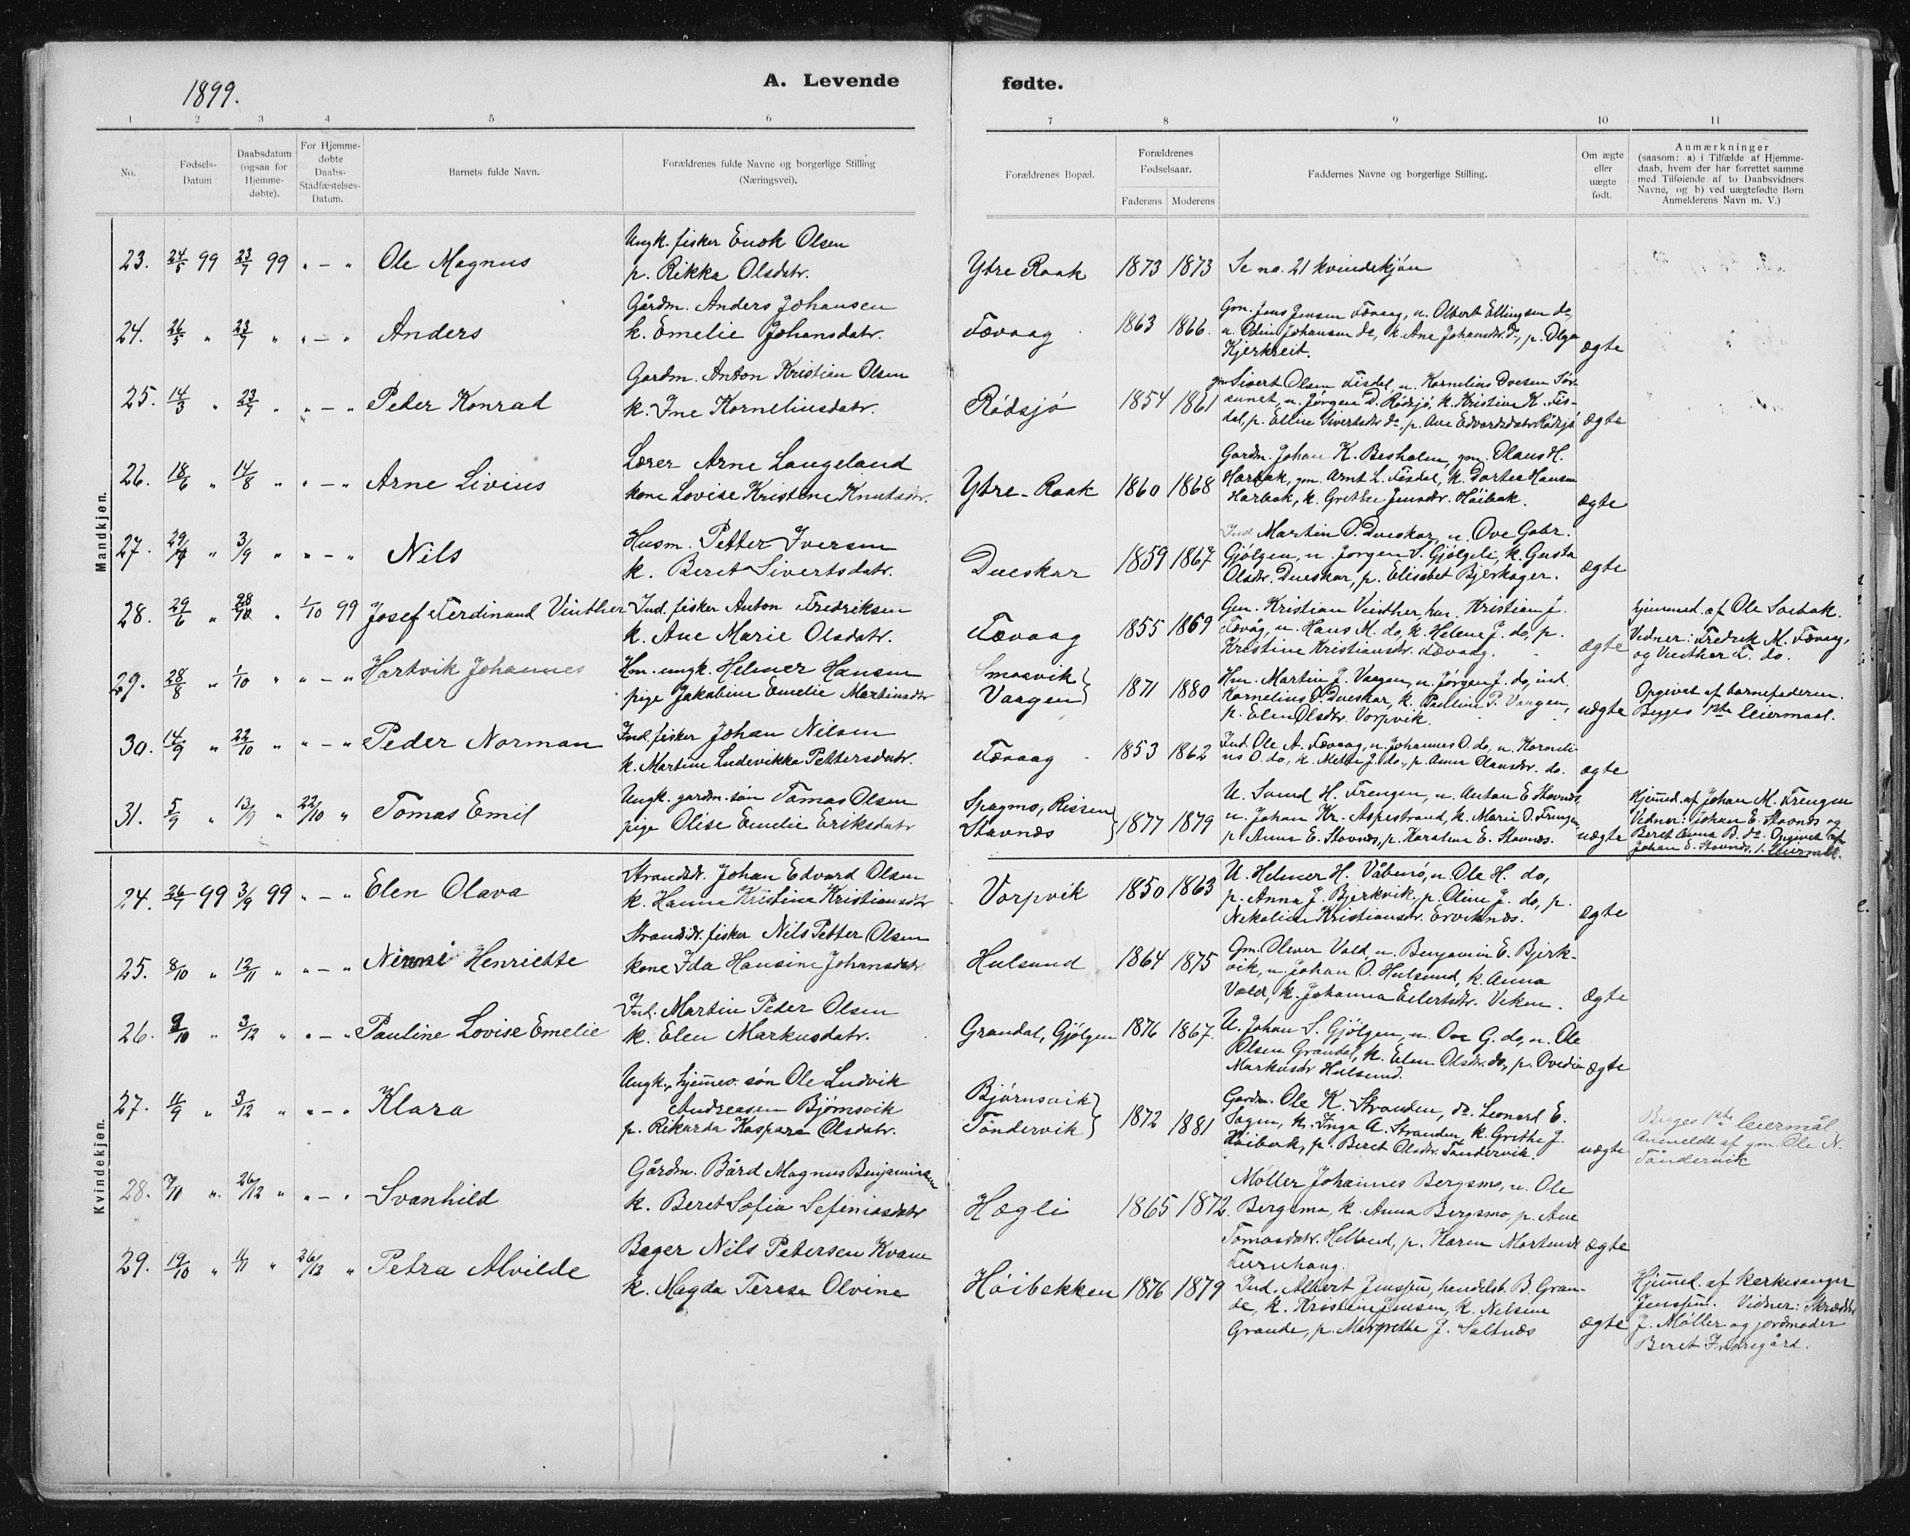 1899.
A. Levende fødte.
1 2 3 4 5 6 7 8 9 10 11
No.
Fødsels-Datum
Daabsdatum (ogsaa for Hjemme-døbte).
For Hjemme-døbte Daabs-Stadfæstelses-Datum.
Barnets fulde Navn.
Forældrenes fulde Navne og borgerlige Stilling (Næringsvei).
Forældrenes Bopæl.
Forældrenes Fødselsaar.
Faderens Moderens
Faddernes Navne og borgerlige Stilling.
Om ægte eller uægte født.
Anmærkninger
(saasom: a) i Tilfælde af Hjemme-
daab, hvem der har forrettet samme
med Tilføiende af to Daabsvidners
Navne, og b) ved uægtefødte Børn
Anmelderens Navn m. V.)
Mandkjøn.
23. 24/5 99 23/7 99 " — " Ole Magnus
Ungk. fisker Enok Olsen
p. Rikka Olsdatr.
Ytre Raak 1873 1873 Se no. 21 kvindekjøn
24. 26/5 " 23/7 " " — " Anders
Gårdm. Anders Johansen
k. Emelie Johansdatr.
Tævaag 1863 1866.
Gm. Jens Jensen Tævaag, u. Albert Ellingsen do,
u. Odin Johansen do, k. Ane Johansdr. do, p. Olga
Kjerkreit.
ægte
25. 14/3 " 23/7 " " — " Peder Konrad
Gardm. Anton Kristian Olsen
k. Ine Korneliusdatr.
Rødsjø 1854 1861
gm Sivert Olsen Fisdal, u. Kornelius Ovesen Sør-
sunet, u. Jørgen D. Rødsjø, k. Kristine K. Fis-
dal, p. Elline Sivertsdr do, p. Ane Edvardsdatr Rødsjø
ægte
26. 18/6 " 14/8 " " — " Arne Livius
Lærer Arne Langeland
kone Lovise Kristine Knutsdr.
Ytre-Raak 1860 1868
Gardm. Johan K. Besholm, gm. Olaus H.
Harbak, gm. Arnt L. Fisdal, k. Dortea Hansen
Harbak, k. Grethe Jensdr. Høibak.
ægte
27. 3/9 " " — " Nils
Husm. Petter Iversen
k. Beret Sivertsdatr.
Dueskar 1859 1867
Ind Martin O. Dueskar, u. Ove Gabr.
Gjølgen, u. Jørgen S. Gjølgeli, k. Gusta
Olsdr. Dueskar, p. Elisabet Bjerkager.
ægte
28. 29/6 " 28/10 " 1/10 99 Josef Ferdinand Vinther
Ind. fisker Anton Fredriksen
k. Ane Marie Olsdatr.
Tævaag 1855 1869
Gm. Kristian Vinther, hm. Kristian J.
Tævåg, u. Hans M. do, k. Helene J. do, p.
Kristine Kristiansdr. Tævaag.
ægte
hjemmed. af Ole Sorbak.
Vidner: Fredrik M. Tævaag,
og Vinther F. do.
29. 28/8 " 1/10 " " — " Hartvik Johannes
Hm. ungk. Helmer Hansen
pige Jakobine Emelie Martinsdtr
Smosvik
Vaagen} 1871 1880
Hm. Martin J. Vaagen, u. Jørgen J. do, ind.
Kornelius O. Dueskar, k. Pauline P. Vaagen,
p. Elen Olsdtr. Vorpvik.
uægte
Opgivet af barnefaderen.
Begges 1ste leiermaal.
30. 14/9 " 22/10 " " — " Peder Norman
Ind. fisker Johan Nilsen
k. Martine Ludevikka Pettersdatr.
Tævaag 1853 1862
Ind. Ole A. Tævaag, u. Johannes O. do, u. Korneli-
us O. do, k. Mette J. do, p. Anne Olausdr. do.
ægte
31. 5/9 " 13/9 " 22/10 " Tomas Emil
Ungk. gardm. søn Tomas Olsen
pige Olise Emelie Eriksdatr
Spagmo, Rissen
Stavnæs} 1877 1879
U. Svend H. Frengen, u. Anton E. Stavnæs,
u. Johan Kr. Aspestrand, k. Marie O. Frengen
p. Anna E. Stavnæs, p. Karolen E. Stavnæs.
uægte
Hjemmed. af Johan M. Frengen
Vidner: Johan E. Stavnæs og
Beret Anna B. do. Opgivet af
Johan E. Stavnæs, 1. Leiermål.
Kvindekjøn.
24. 26/7 99 3/9 99 " — " Elen Olava
Strandsdr. Johan Edvard Olsen
k. Hanna Kristina Kristiansdtr
Vorpvik 1850 1863
U. Helmer H. Våbenø, u. Ole H. do,
p. Anna J. Bjerkvik, p. Oline J. do, p.
Nikoline Kristiansdr. Erviknæs.
ægte
25. 8/10 " 12/11 " " — " Ninni Henriette
Strandsdr. fisker Nils Petter Olsen
kone Ida Hansine Johansdatr
Hulsund 1864 1875
Gm. Oliver Vold, u. Benjamin E. Bjerk-
vik, u. Johan O. Hulsund, k. Anna
Vold, k. Johanna Eilertsdr. Viken.
ægte
26. 9/10 " 3/12 " " — " Pauline Lovise Emelie
Ind. Martin Peder Olsen
k. Elen Markusdatr.
Grandal, Gjølgen 1876 1867.
U. Johan S. Gjølgen, u. Ove G. do, u. Ole
Olsen Grandal, k. Elen Olsdtr. do, p. Ovedia
Markusdr Hulsund.
ægte
27. 11/9 " 3/12 " " — " Klara
Ungk. hjemmev. søn Ole Ludvik
Andreasen Bjørnsvik
p. Rikarda Kaspara Olsdatr.
Bjørnsvik
Tøndervik} 1872 1881
Gardm. Ole K. Stranden, do. Leonard E.
Sagen, k. Inga A. Stranden, k. Grethe J.
Høibak, p. Beret Olsdtr. Tøndervik.
uægte
Begges 1ste leiermål
Anmeldt af gm. Ole N.
Tøndervik
28. 7/11 " 26/12 " " — " Svanhild
Gårdm. Bård Magnus Benjaminsen
k. Beret Sofia Sefaniasdatr
Hægli 1865 1872.
Møller Johannes Bergsmo, u. Ole
Bergsmo, k. Anna Bergsmo, p. Ane
Tomasdatr. Helland, p. Karen Mortensdr
Furuhaug.
ægte
29. 19/10 " 11/11 " 26/12 " Petra Alvilde
Bager Nils Petersen Kvam
k. Magda Terese Olvine
Høibakken 1876 1879
Ind. Albert Jenssen, handelsb. B. Gran-
de, k. Kristine Jensen, k. Nilsine
Grande, p. Margrethe J. Saltnæs
ægte
Hjemmed. af kirkesanger
Jenssen. Vidner: Skrædder
J. Møller og jordmoder
Beret Indregård.